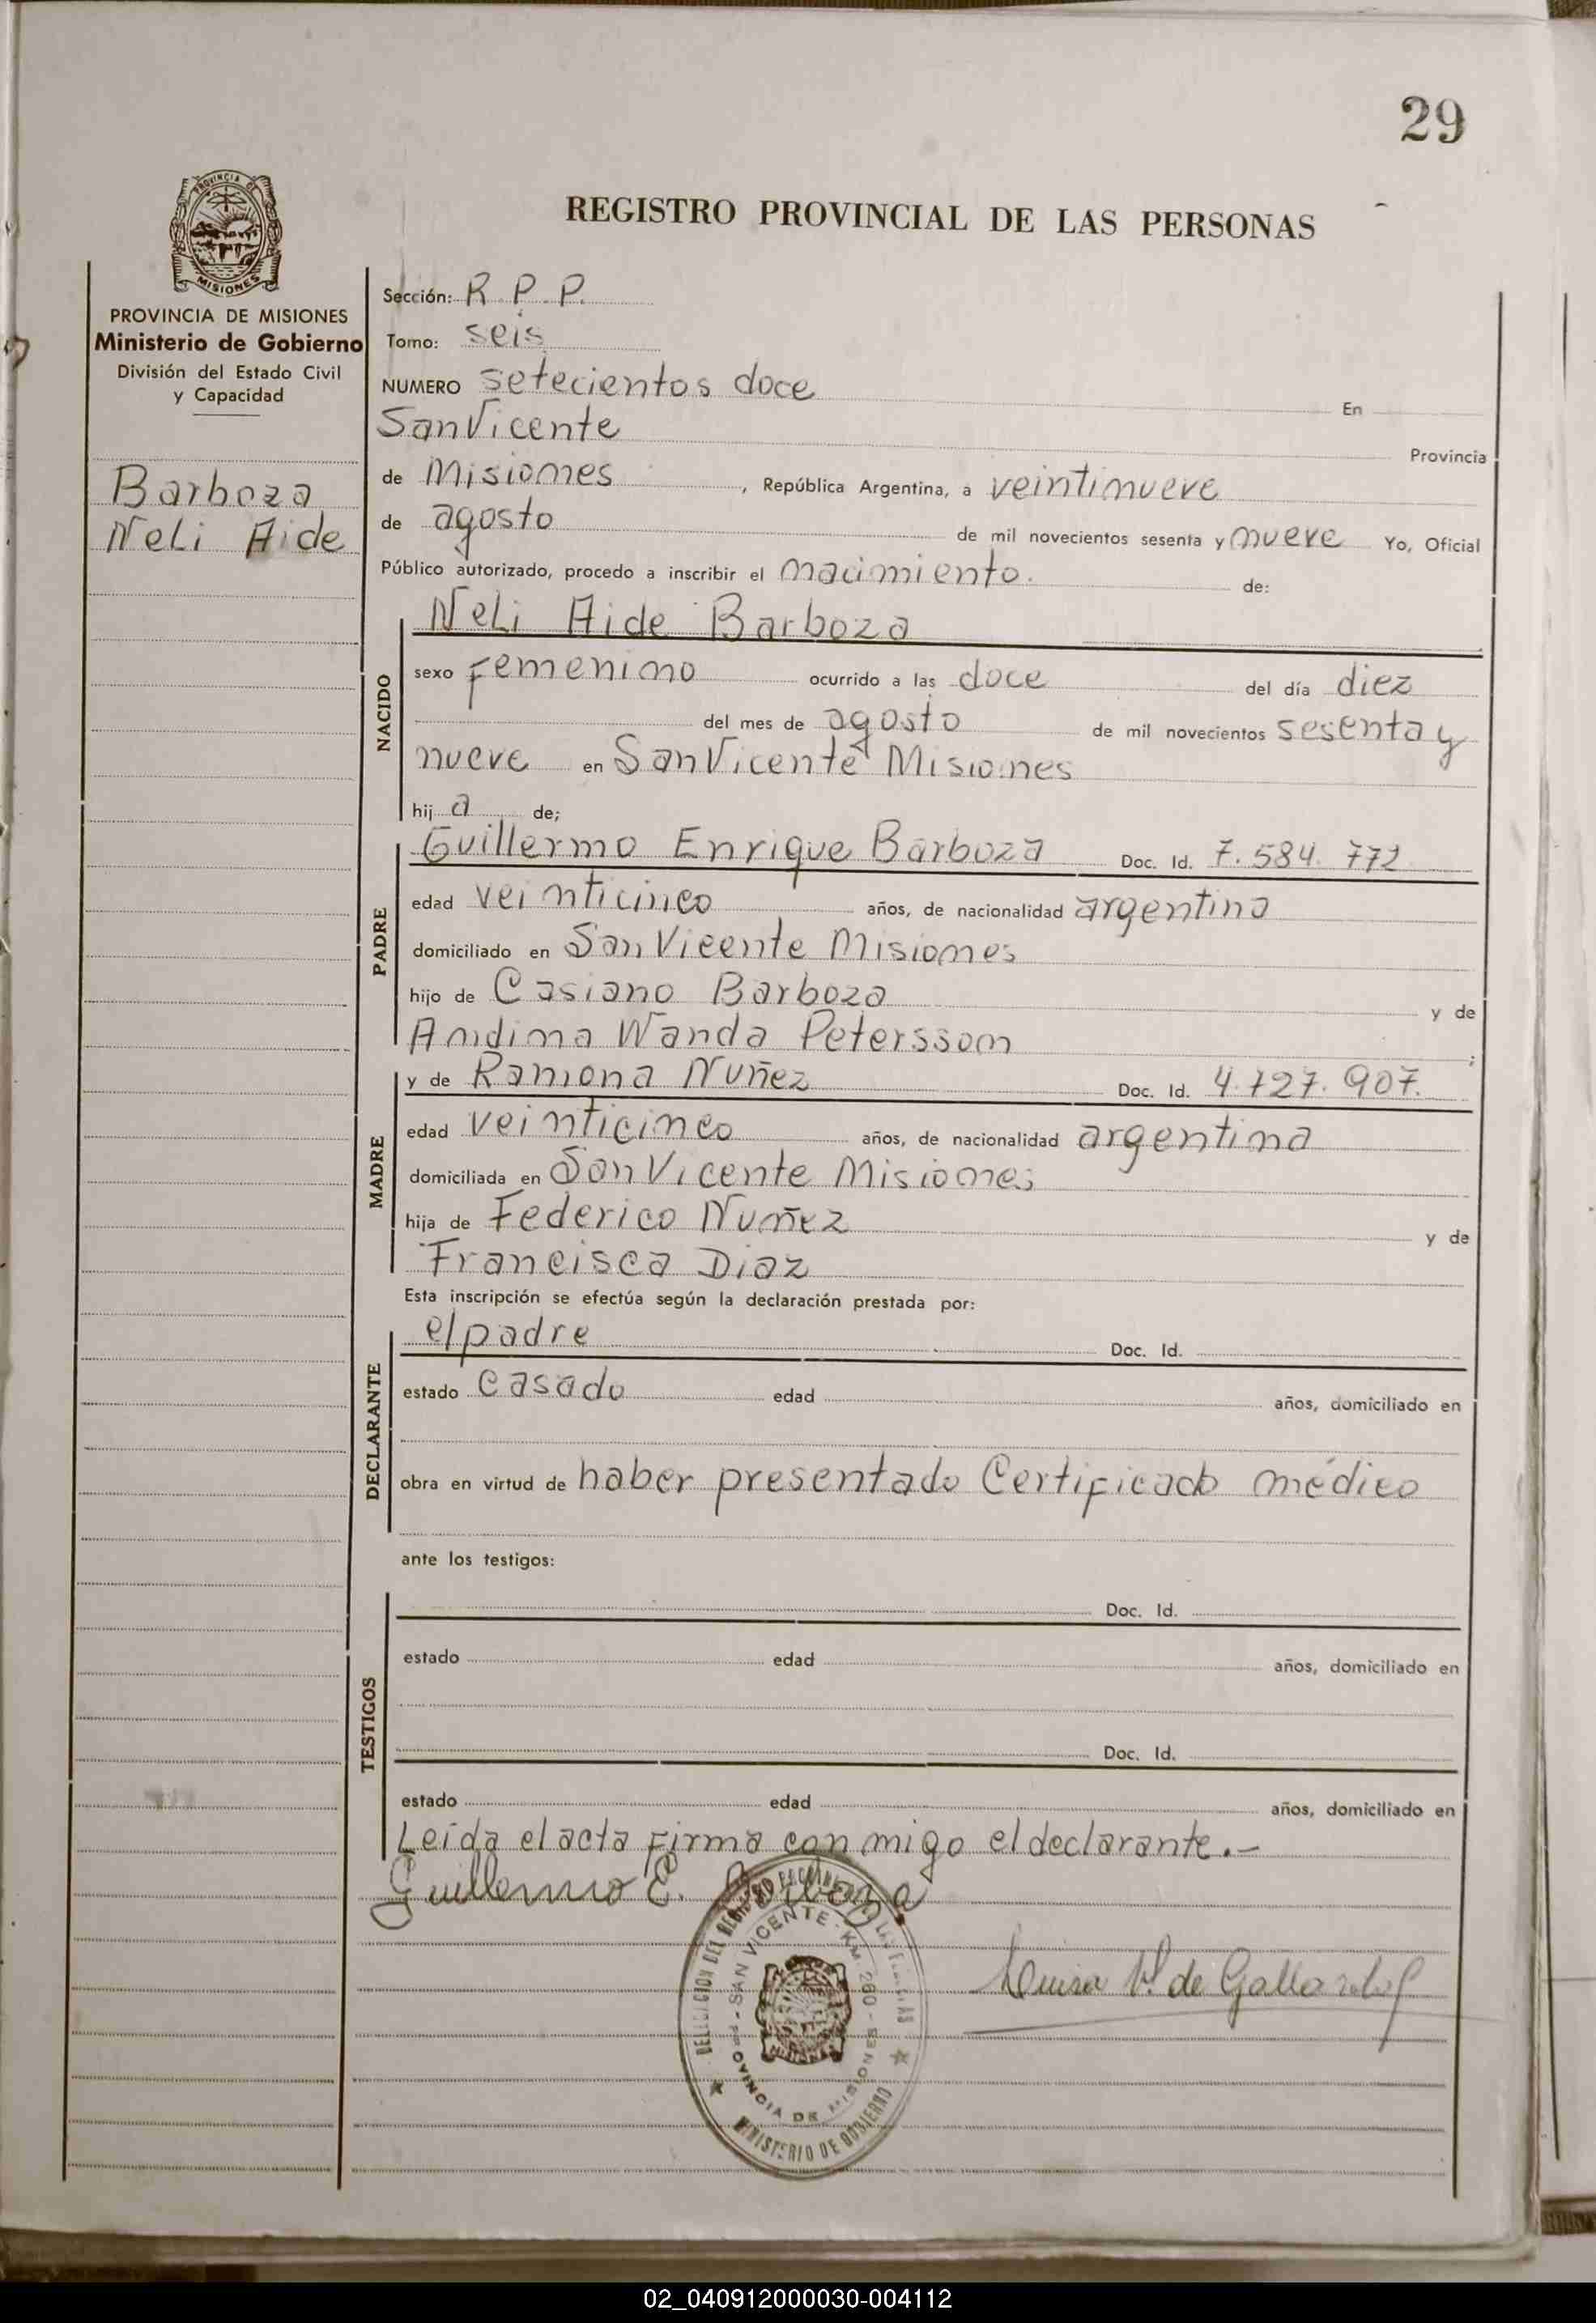 29
PROVINCIA DE
MISIONES
REGISTRO PROVINCIAL DE LAS PERSONAS
PROVINCIA DE MISIONES
Ministerio de Gobierno
División del Estado Civil
y Capacidad
Barboza
Neli Aide
Sección: R. P. P.
Tomo: seis
NUMERO setecientos doce En
San Vicente Provincia
de Misiones, República Argentina, a veintinueve
de agosto de mil novecientos sesenta y nueve Yo, Oficial
Público autorizado, procedo a inscribir el nacimiento. de:
NACIDO
Neli Aide Barboza
sexo femenino ocurrido a las doce del día diez
del mes de agosto de mil novecientos sesenta y
nueve en San Vicente Misiones
hij a de;
PADRE
Guillermo Enrique Barboza Doc. Id. 7.584.772
edad veinticinco años, de nacionalidad argentino
domiciliado en San Vicente Misiones
hijo de Casiano Barboza y de
Andina Wanda Peterssom ;
MADRE
y de Ramona Nuñez Doc. Id. 4.727.907.
edad veinticinco años, de nacionalidad argentina
domiciliada en San Vicente Misiones
hija de Federico Nuñez y de
Francisca Diaz
Esta inscripción se efectúa según la declaración prestada por:
DECLARANTE
el padre Doc. Id.
estado casado edad años, domiciliado en
obra en virtud de haber presentado Certificado médico
ante los testigos:
TESTIGOS
Doc. Id.
estado edad años, domiciliado en
Doc. Id.
estado edad años, domiciliado en
Leída el acta firma con migo el declarante.-
Guillermo E. Barboza
SAN VICENTE - KM. 260 - MISIONES
PROVINCIA DE MISIONES
MINISTERIO DE GOBIERNO
Luisa V. de Gallardo
02_040912000030-004112